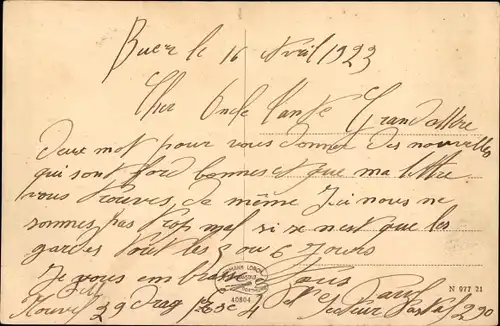 Buer le 16 Avril 1923
Cher Oncle Tante Grandmère
Deux mot pour vous donner des nouvelles
qui sont ford bonnes et que ma lettre
vous trouves de même Ici nous ne
sommes pas trop mal si se nest que les
gardes tout les 5 ou 6 Jours
Je vous embrasse Tous
29 Drag
40804
N 977 21